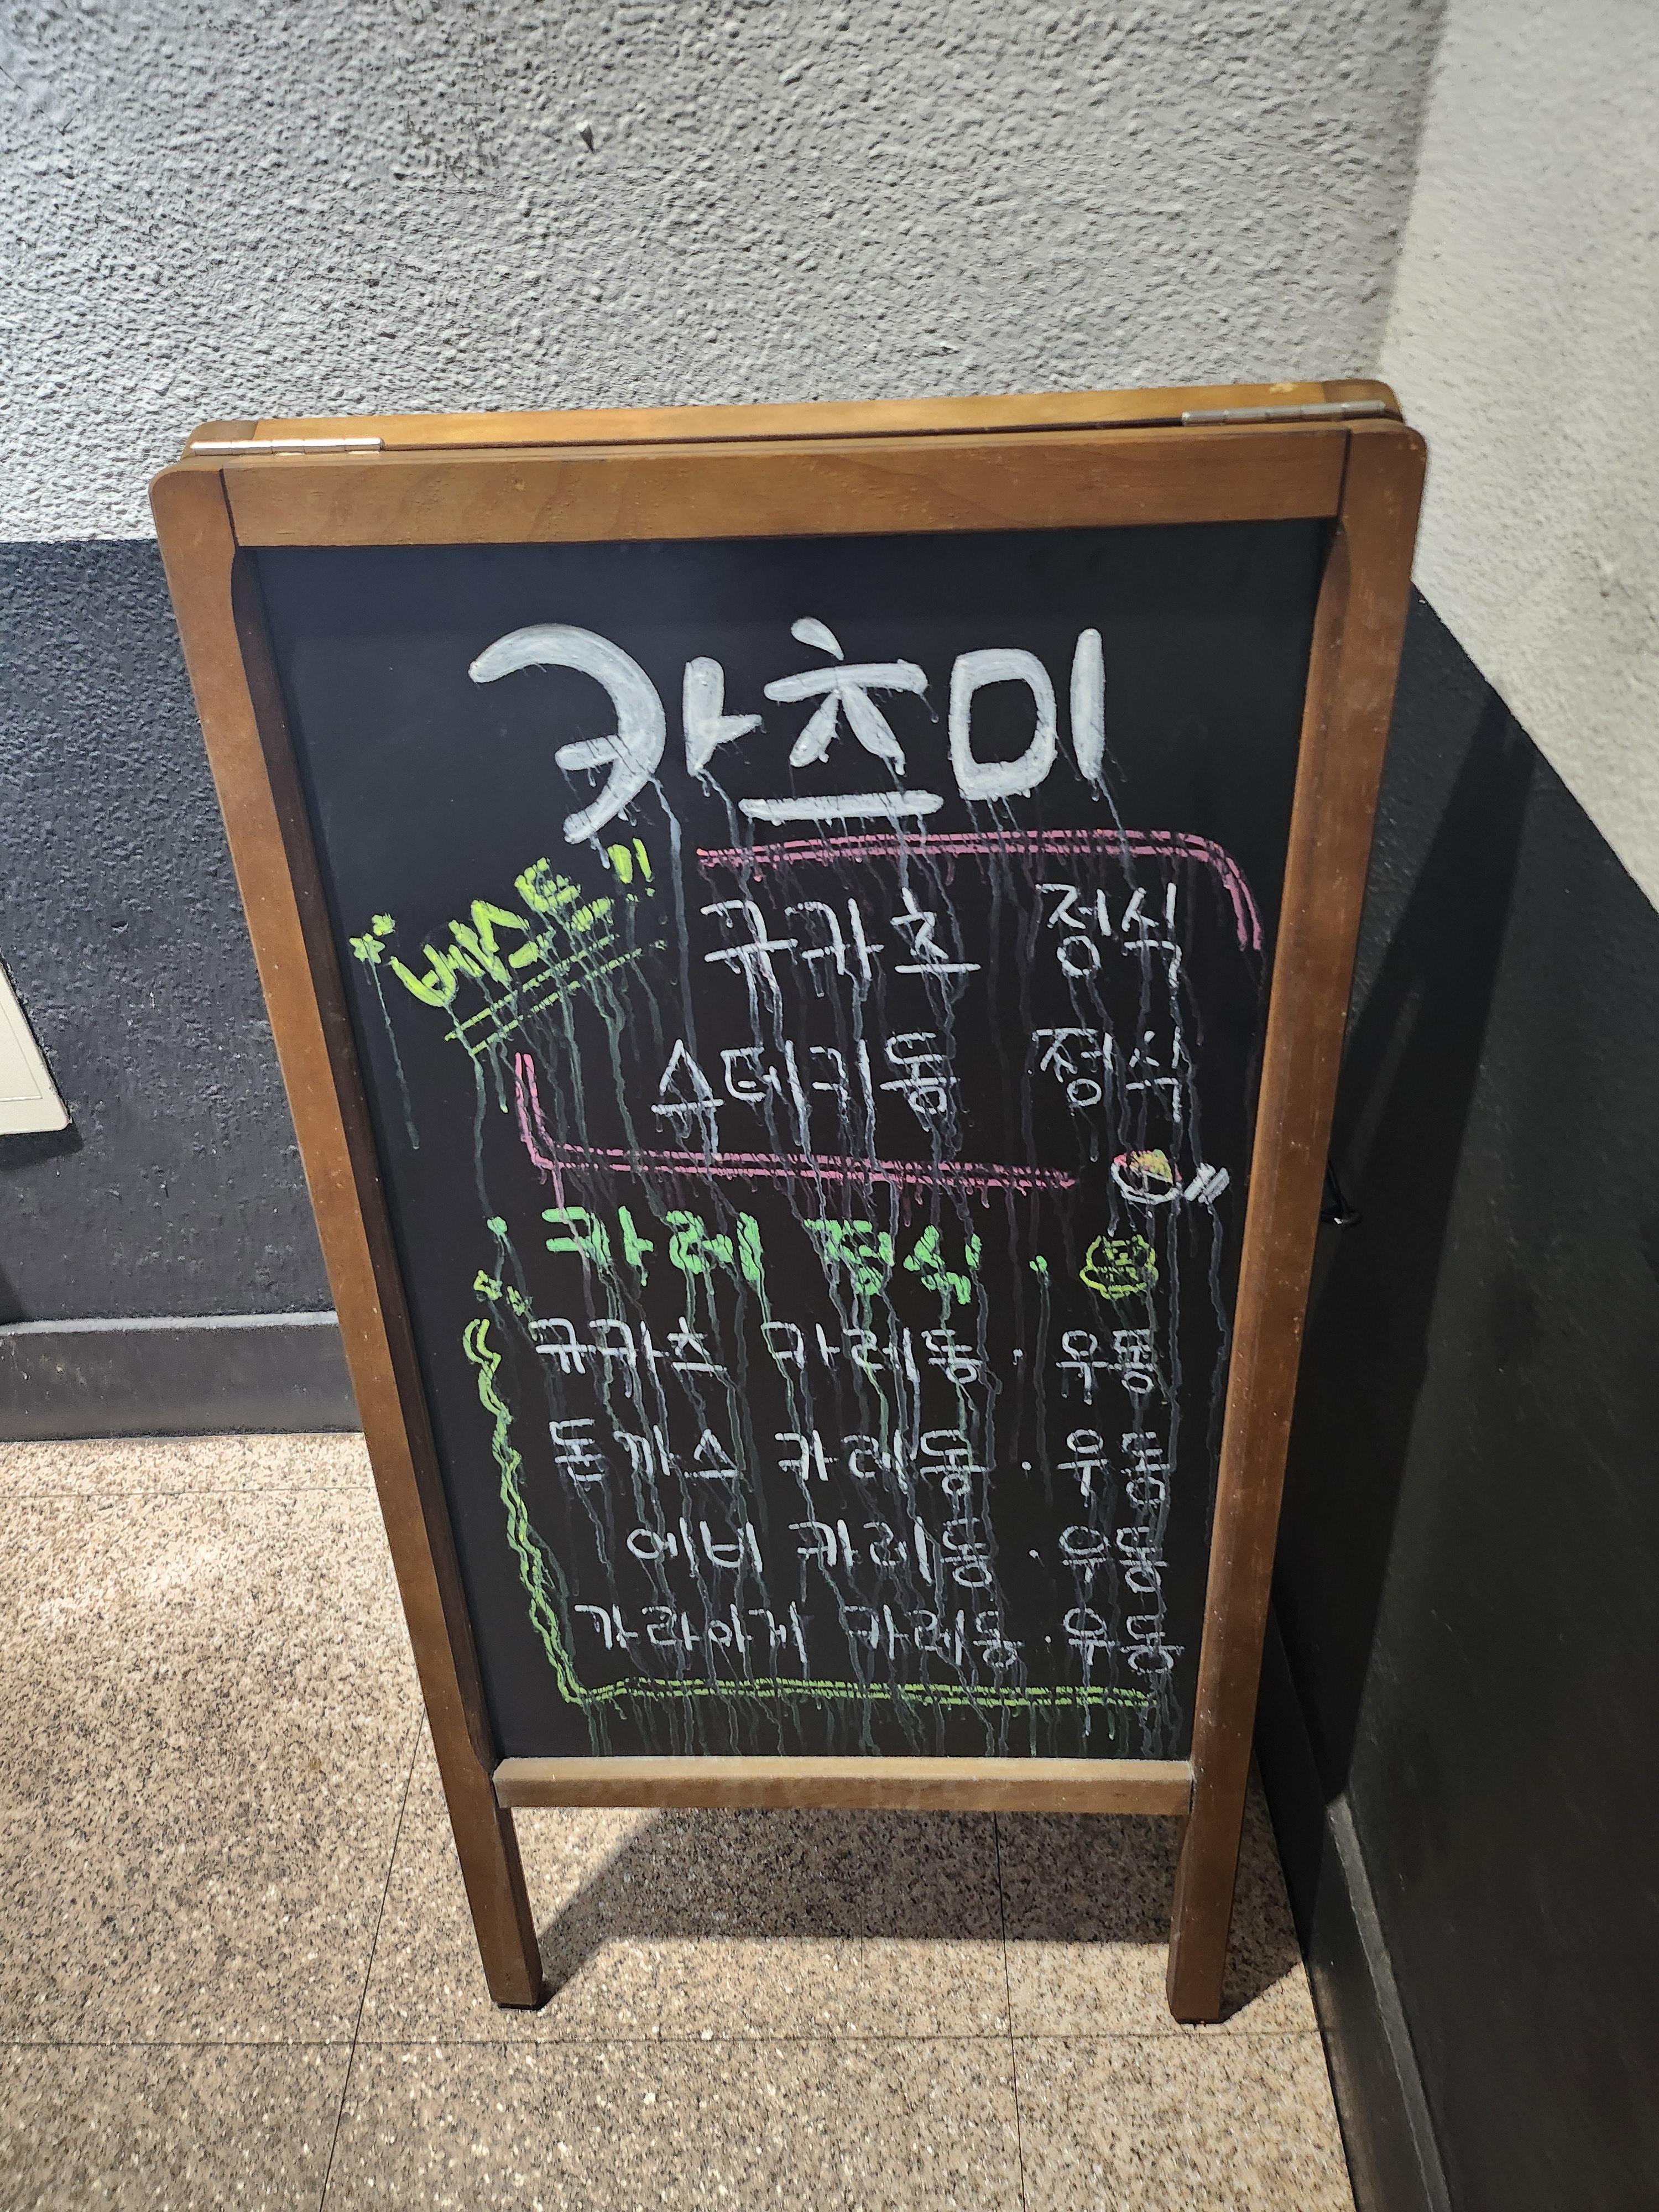 카츠미
베스트!!
규카츠 정식
스테키동 정식
카레 정식
규카츠 카레동·우동
돈까스 카레동·우동
에비 카레동·우동
가라아게 카레동·우동